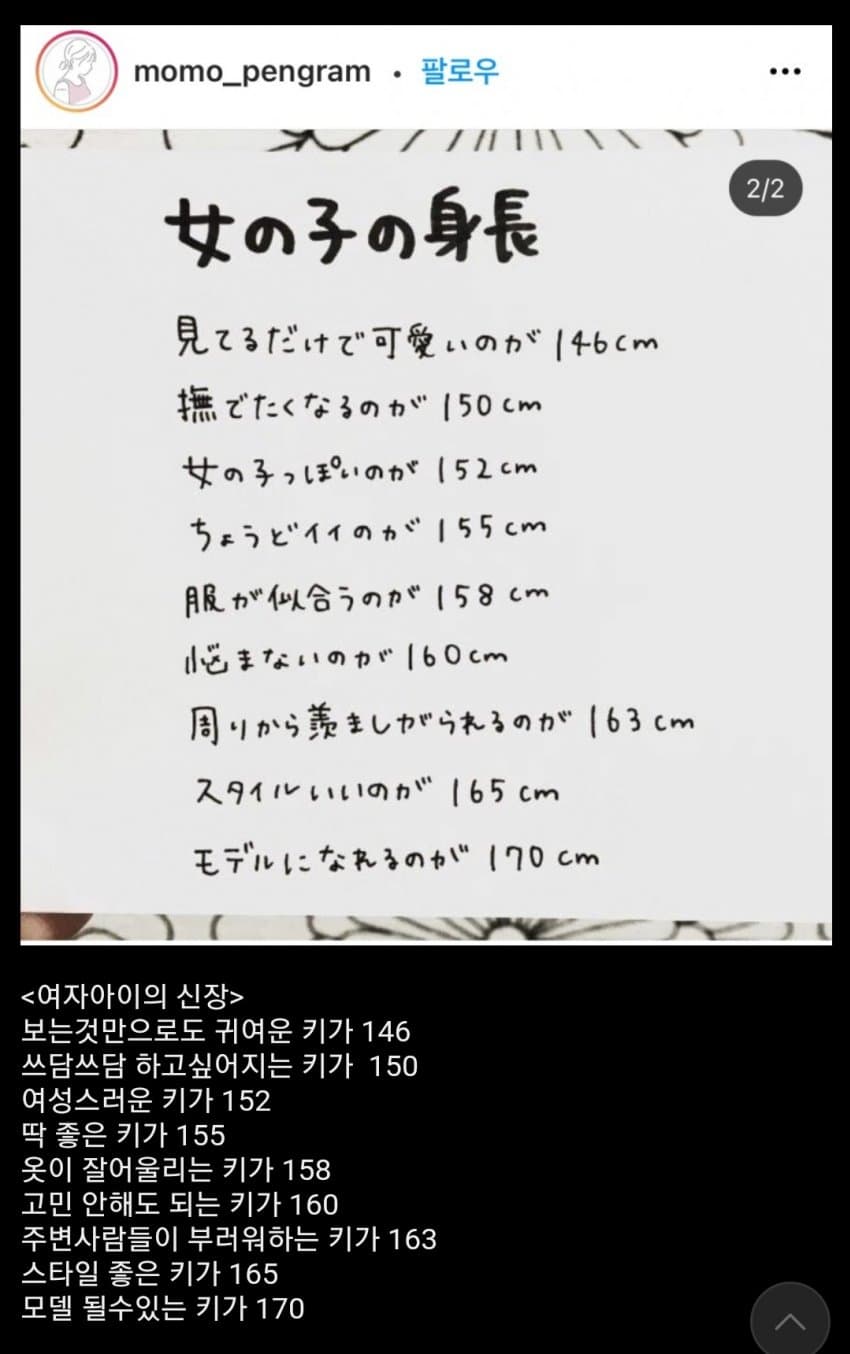 momo_pengram • 팔로우
2/2
女の子の身長
見てるだけで可愛いのが 146cm
撫でたくなるのが 150cm
女の子っぽいのが 152cm
ちょうどイイのが 155cm
服が似合うのが 158cm
悩まないのが 160cm
周りから羨ましがられるのが 163cm
スタイルいいのが 165cm
モデルになれるのが 170cm
<여자아이의 신장>
보는것만으로도 귀여운 키가 146
쓰담쓰담 하고싶어지는 키가  150
여성스러운 키가 152
딱 좋은 키가 155
옷이 잘어울리는 키가 158
고민 안해도 되는 키가 160
주변사람들이 부러워하는 키가 163
스타일 좋은 키가 165
모델 될수있는 키가 170